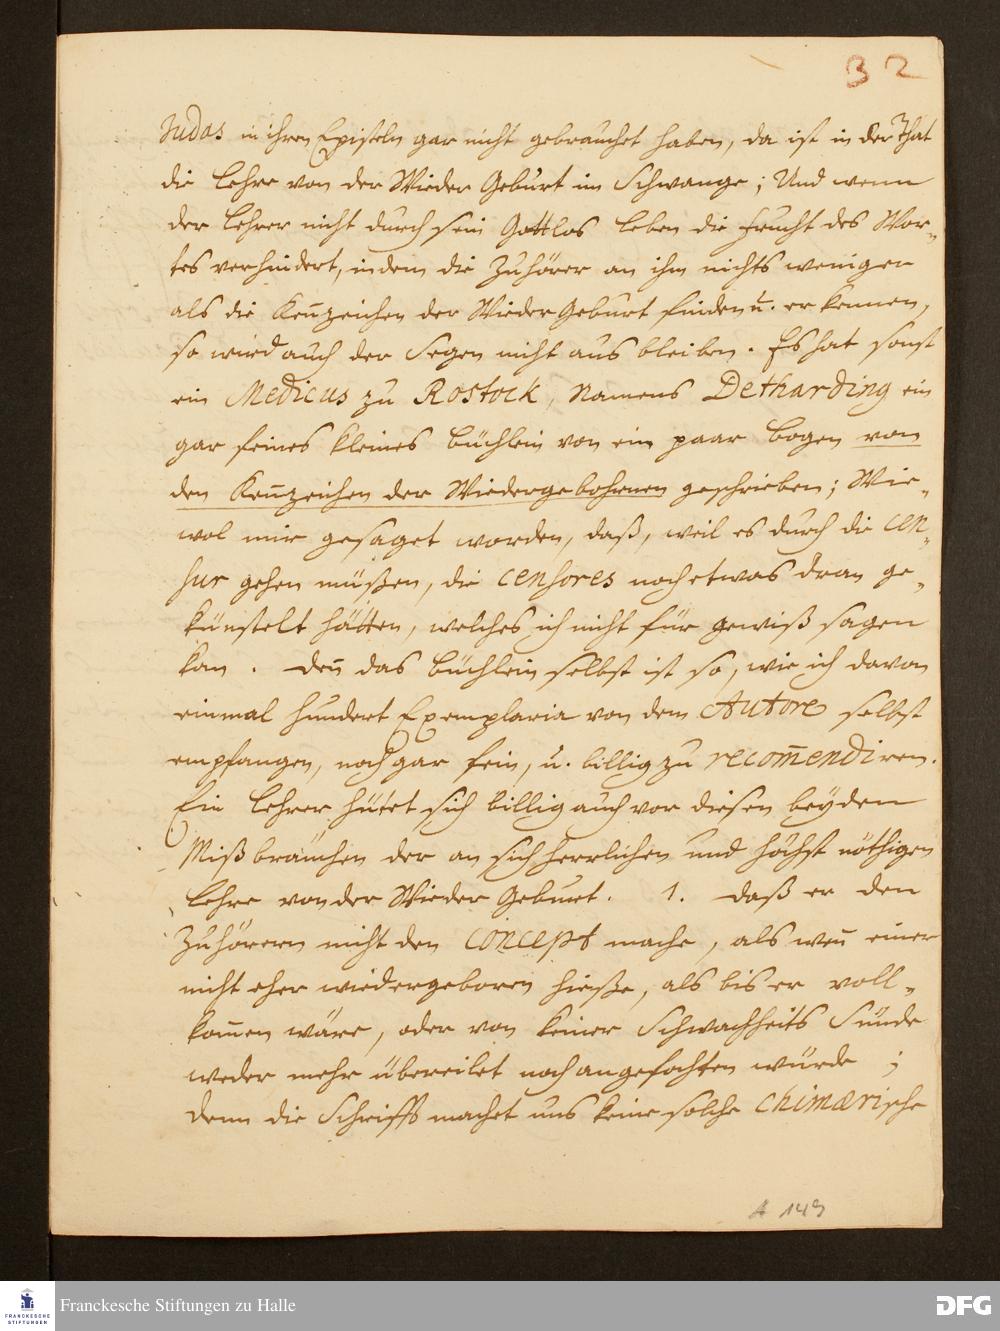 32
Judas in ihren Episteln gar nicht gebrauchet haben, da ist in der That
die Lehre von der Wieder Geburt im Schwange; Und wenn
der Lehrer nicht durch sein Gottlos Leben die Frucht des Wor-
tes verhindert, indem die Zuhörer an ihm nichts weniger
als die Keñzeichen der Wieder Geburt finden u. erkennen,
so wird auch der Segen nicht aus bleiben. Es hat sonst
ein Medicus zu Rostock, Namens Detharding ein
gar feines kleines Büchlein von ein paar Bogen von
den Keñzeichen der Wiedergebohrnen geschrieben; Wie-
wol mir gesaget worden, daß, weil es durch die Cen-
sur gehen müßen, die Censores noch etwas dran ge-
künstelt hätten, welches ich nicht für gewiß sagen
kan. Deñ das Büchlein selbst ist so, wie ich davon
einmal hundert Exemplaria von dem Autore selbst
empfangen, noch gar fein, u. billig zu recom̃endiren.
Ein Lehrer hütet sich billig auch vor diesen beyden
Mißbräuchen der an sich herrlichen und höchst nöthigen
Lehre von der Wieder Geburt. 1. Daß er den
Zuhörern nicht den Concept mache, als weñ einer
nicht eher wiedergeboren hieße, als bis er voll-
kom̃en wäre, oder von keiner Schwachheits Sünde
weder mehr übereilet noch angefochten würde;
Denn die Schrifft machet uns keine solche chimærische
A 149
FRANCKESCHE
STIFTUNGEN
Franckesche Stiftungen zu Halle
DFG